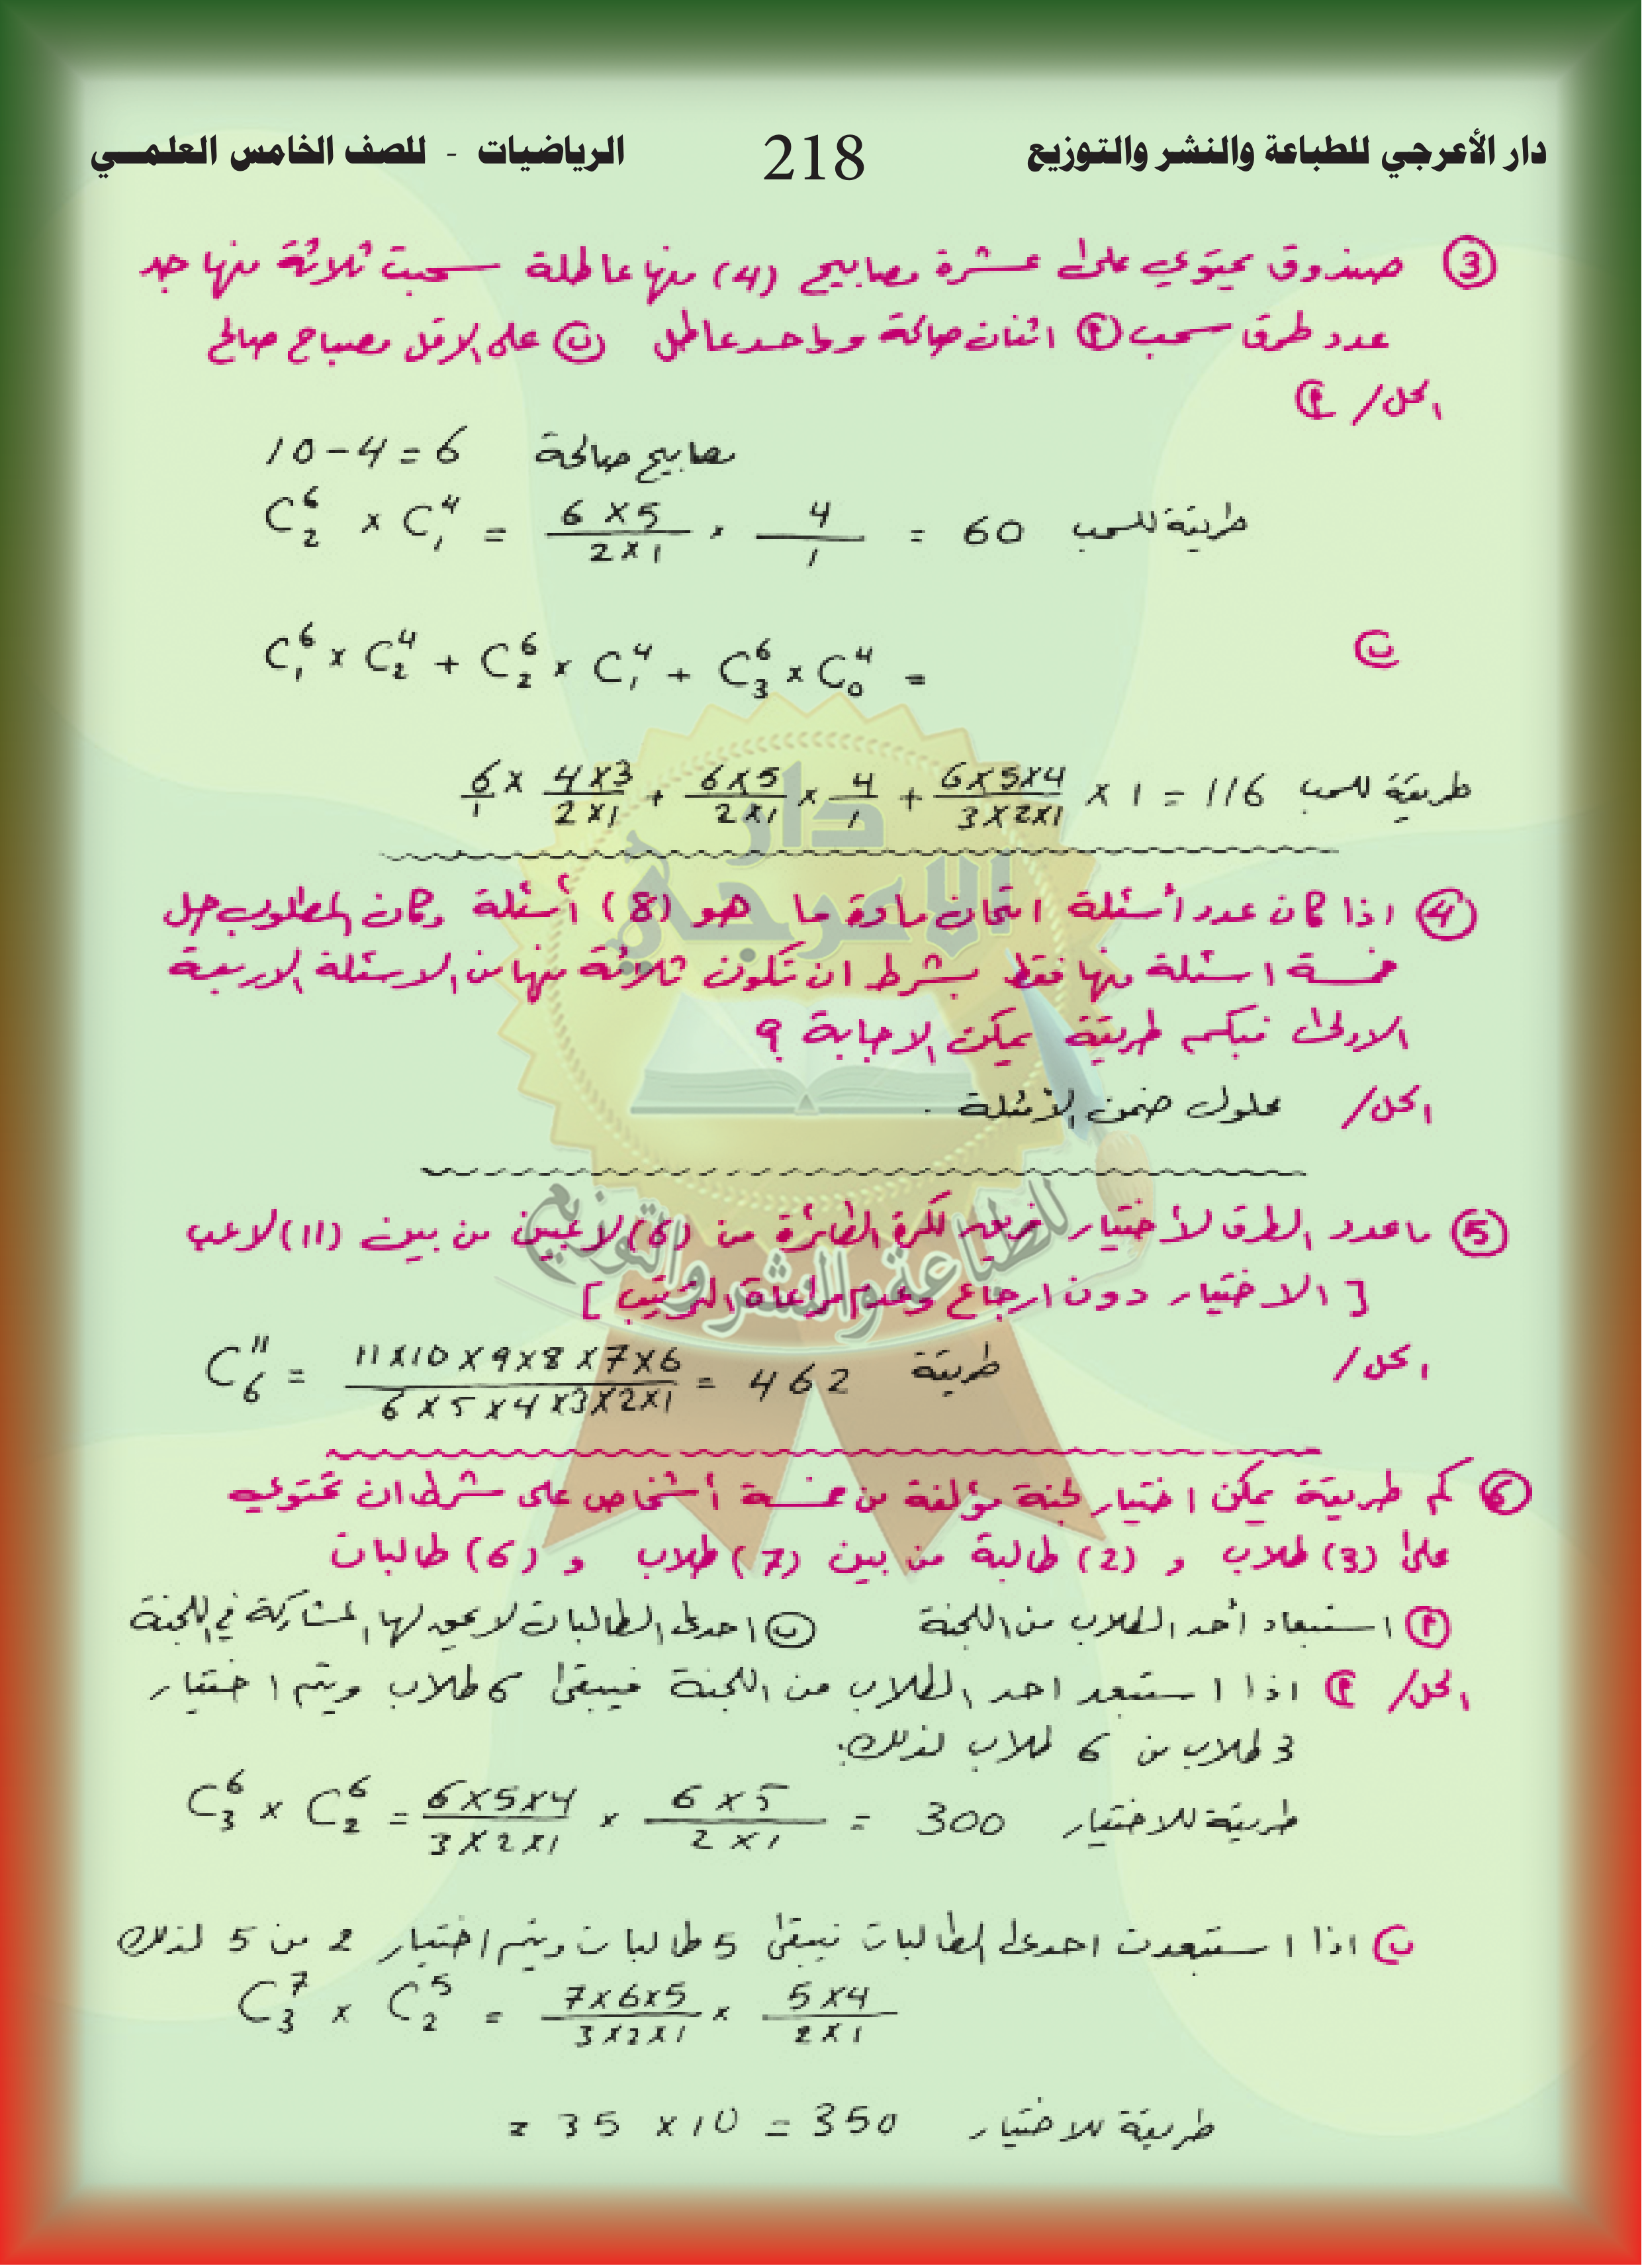 دار الأعرجي للطباعة والنشر والتوزيع 218 الرياضيات - للصف الخامس العلمــي
③ صندوق يحتوي على عشرة مصابيح (4) منها عاطلة سحبت ثلاثة منها جد
عدد طرق سحب Ⓟ اثنان صالحة وواحد عاطل ⓑ على الاقل مصباح صالح
الحل / أ
10 - 4 = 6 مصابيح صالحة
C⁶₂ × C⁴₁ = (6×5)/(2×1) × 4/1 = 60 طريقة للسحب
ب
C⁶₁ × C⁴₂ + C⁶₂ × C⁴₁ + C⁶₃ × C⁴₀ =
6/1 × (4×3)/(2×1) + (6×5)/(2×1) × 4/1 + (6×5×4)/(3×2×1) × 1 = 116 طريقة للسحب
دار
الاعرجي
④ اذا كان عدد أسئلة امتحان مادة ما هو (8) أسئلة وكان المطلوب حل
خمسة اسئلة منها فقط بشرط ان تكون ثلاثة منها من الاسئلة الاربعة
الاولى فبكم طريقة يمكن الاجابة ؟
الحل / محلول ضمن الأمثلة .
للطباعة والنشر والتوزيع
⑤ ما عدد الطرق لأختيار فريق لكرة الطائرة من (6) لاعبين من بين (11) لاعب
[ الاختيار دون ارجاع وعدم مراعاة الترتيب ]
الحل / C¹¹₆ = (11×10×9×8×7×6)/(6×5×4×3×2×1) = 462 طريقة
⑥ كم طريقة يمكن اختيار لجنة مؤلفة من خمسة أشخاص على شرط ان تحتوي
على (3) طلاب و (2) طالبة من بين (7) طلاب و (6) طالبات
أ استبعاد أحد الطلاب من اللجنة ب احدى الطالبات لا يحق لها المشاركة في اللجنة
الحل / أ اذا استبعد احد الطلاب من اللجنة فيبقى 6 طلاب ويتم اختيار
3 طلاب من 6 طلاب لذلك:
C⁶₃ × C⁶₂ = (6×5×4)/(3×2×1) × (6×5)/(2×1) = 300 طريقة للاختيار
ب اذا استبعدت احدى الطالبات فيبقى 5 طالبات ويتم اختيار 2 من 5 لذلك
C⁷₃ × C⁵₂ = (7×6×5)/(3×2×1) × (5×4)/(2×1)
= 35 × 10 = 350 طريقة للاختيار